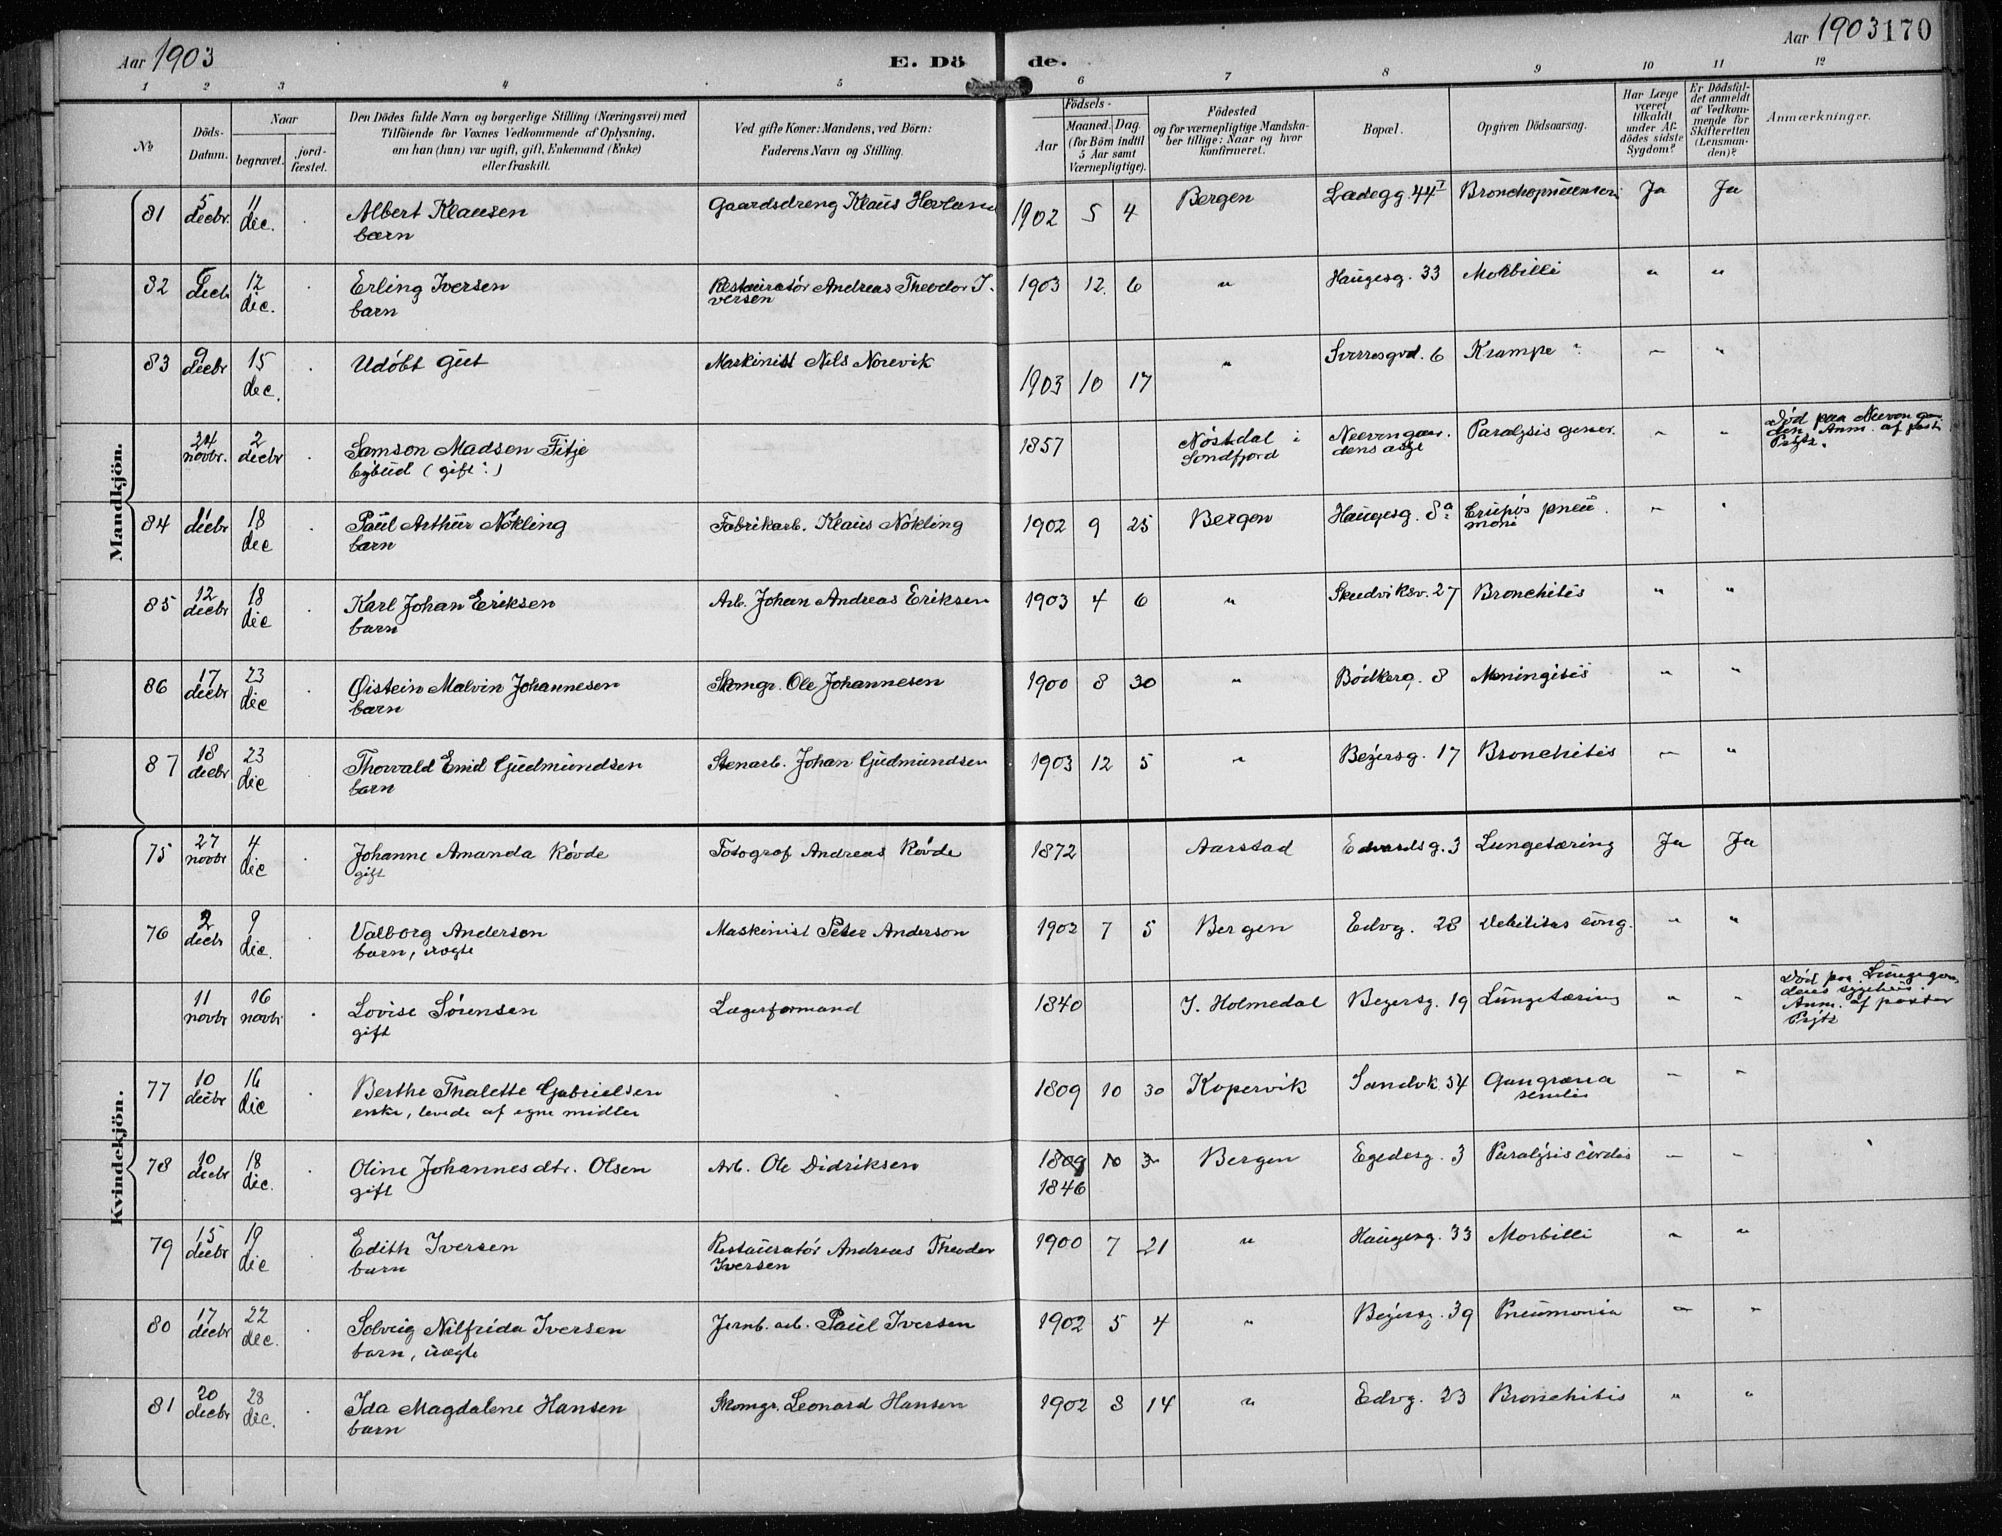 Aar 1903
E. Dö de.
Aar 1903 170
1 2 3 4 5 6 7 8 9 10 11 12
No
Döds-Datum.
Naar
begravet.
jord-fæstet.
Den Dödes fulde Navn og borgerlige Stilling (Næringsvei) med
Tilföiende for Voxnes Vedkommende af Oplysning,
om han (hun) var ugift, gift, Enkemand (Enke)
eller fraskilt.
Ved gifte Koner: Mandens, ved Börn:
Faderens Navn og Stilling.
Födsels-
Aar
Maaned. Dag.
(for Börn indtil
5 Aar samt
Værnepligtige).
Födested
og for værnepligtige Mandska-
ber tillige: Naar og hvor
konfirmeret.
Bopæl.
Opgiven Dödsaarsag.
Har Læge
været
tilkaldt
under Af-
dödes sidste
Sygdom?
Er Dödsfal-
det anmeldt
af Vedkom-
mende for
Skifteretten
(Lensman-
den)?
Anmærkninger.
Mandkjön.
81 5 decbr. 11 dec. Albert Klausen Gaardsdreng Klaus Hovland 1902 5 4 Bergen Ladegg. 44 I Bronchopneumoni Ja Ja
barn
82 6 decb 12 dec. Erling Iversen Restauratör Andreas Theodor I- 1903 12 6 " Haugesg. 33 Morbilli " "
barn versen
83 9 decbr 15 dec. Udöbt gut Maskinist Nils Norevik 1903 10 17 " Sverresgd. 6 Krampe " "
24 novbr. 2 decbr Samson Madsen Fitje 1857 Nöstdal i Neevengaar- Paralysis gener. " " Död paa Neevengaa-
bybud (gift:) Söndfjord dens asyl den. Anm. af pastor
Prytz.
84 11 decbr 18 dec Paul Arthur Nökling Fabrikarb. Klaus Nökling 1902 9 25 Bergen Haugesg. 8a Crupös pneu- " "
barn moni
85 12 decbr 18 dec Karl Johan Eriksen Arb. Johan Andreas Eriksen 1903 4 6 " Skudviksv. 27 Bronchitis " "
barn
86 17 decbr 23 dec Øistein Malvin Johannesen Skomgr. Ole Johannesen 1900 8 30 " Bödkerg. 8 Meningitis " "
barn
87 18 decbr 23 dec Thorvald Emil Gudmundsen Stenarb. Johan Gudmundsen 1903 12 5 " Beyersg. 17 Bronchitis " "
barn
Kvindekjön.
75 27 novbr 4 dec Johanne Amanda Rövde Fotograf Andreas Rövde 1872 Aarstad Edvardsg. 3 Lungetæring Ja Ja
gift
76 2 decbr 9 dec. Valborg Andersen Maskinist Peter Anderson 1902 7 5 Bergen Edvg. 28 Debilitas cong. " "
barn, uægte
11 novbr 16 novbr Lovise Sörensen Lagerformand 1840 I. Holmedal Beyersg. 19 Lungetæring " " Död paa Lungegaar-
gift dens sygehus.
Anm. af pastor
Prytz
77 10 decbr 16 dec Berthe Thalette Gabrielsen 1809 10 30 Kopervik Sandvk. 54 Gangræna " "
enke, levede af egne midler senilis
78 10 decbr 18 dec. Oline Johannesdtr. Olsen Arb. Ole Didriksen 1809 10 3 Bergen Egedesg. 3 Paralysis cordis " "
gift 1846
79 15 decbr 19 dec Edith Iversen Restauratör Andreas Theodor 1900 7 21 " Haugesg. 33 Morbilli " "
barn Iversen
80 17 decbr 22 dec. Solveig Nilfrida Iversen Jernb. arb. Paul Iversen 1902 5 4 " Beyersg. 39 Pneumonia " "
barn, uægte
81 20 decbr 28 dec. Ida Magdalene Hansen Skomgr. Leonard Hansen 1902 8 14 " Edvg. 23 Bronchitis " "
barn